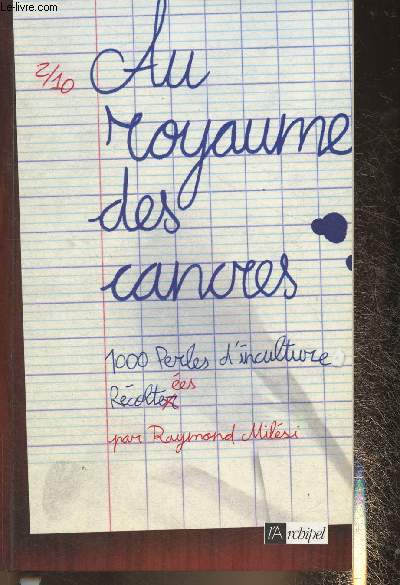 Le-livre.com
2/10
Au
royaume
des
cancres
1000 Perles d'inculture
ées
Récolter
par Raymond Milési
l'Archipel